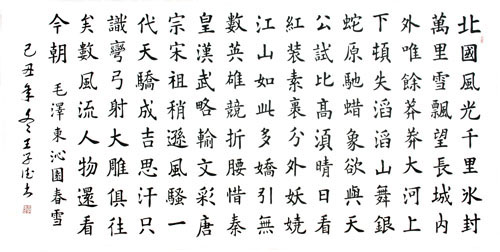 北國風光千里氷封
萬里雪飄望長城内
外唯餘莽莽大河上
下頓失滔滔山舞銀
蛇原馳蜡象欲與天
公試比高須晴日看
紅装素裹分外妖娆
江山如此多嬌引無
數英雄競折腰惜秦
皇漢武略輸文彩唐
宗宋祖稍遜風騷一
代天驕成吉思汗只
識彎弓射大雕俱往
矣數風流人物還看
今朝 毛澤東沁園春雪
己丑年冬王